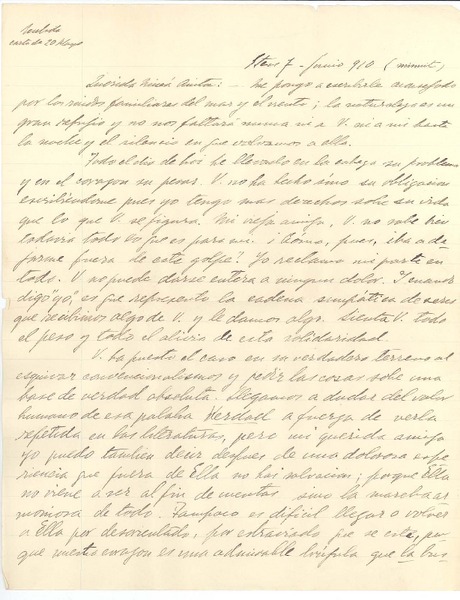 Recibida
carta de 20 Mayo
Stes 7 - Junio 910 (minuit)
Querida Misiá Anita: - Me pongo a escribirle arrullado
por los ruidos familiares del mar y el viento; la naturaleza es un
gran refugio y no nos faltará nunca ni a V. ni a mi hasta
la noche y el silencio en que volvamos a ella.
Todo el dia de hoi he llevado en la cabeza su problema
y en el corazon su pena. V. no ha hecho sino su obligacion
escribiendome pues yo tengo mas derechos sobre su vida
que lo que V. se figura. Mi vieja amiga, V. no sabe bien
todavia todo lo que es para mi. ¿Cómo, pues, iba a de
jarme fuera de este golpe? Yo reclamo mi parte en
todo. V. no puede darse entera a ningun dolor. I cuando
digo "yo", es que represento la cadena simpática de seres
que recibimos algo de V. y le damos algo. Sienta V. todo
el peso y todo el alivio de esta solidaridad.
V. ha puesto el caso en su verdadero terreno al
esquivar convencionalismos y pedir las cosas sobre una
base de verdad absoluta. Llegamos a dudar del valor
humano de esa palabra Verdad a fuerza de verla
repetida en las literaturas, pero mi querida amiga
yo puedo tambien decir despues de una dolorosa espe
riencia que fuera de Ella no hai salvacion; porque Ella
no viene a ser al fin de cuentas sino la marcha ar
moniosa de todo. Tampoco es dificil llegar o volver
a Ella por desorientado, por estraviado que se esté, por
que nuestro corazon es una admirable brújula que la bus